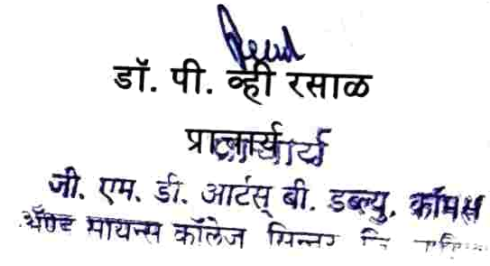 डॉ. पी. व्ही रसाळ
प्राचार्य
जी. एम. डी. आर्टस् बी. डब्ल्यु. कॉमर्स
ॲण्ड सायन्स कॉलेज सिन्नर